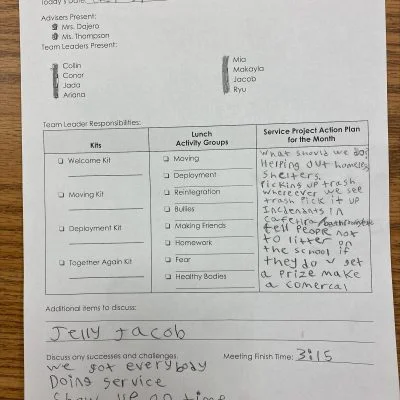 Today's Date:
Advisers Present:
Mrs. Dajero
Ms. Thompson
Team Leaders Present:
Collin
Conor
Jada
Ariana
Mia
Makayla
Jacob
Ryu
Team Leader Responsibilities:
Kits
Welcome Kit
Moving Kit
Deployment Kit
Together Again Kit
Lunch
Activity Groups
Moving
Deployment
Reintegration
Bullies
Making Friends
Homework
Fear
Healthy Bodies
Service Project Action Plan
for the Month
What should we do?
Helping out homeless
shelters.
Picking up trash
whereever we see
trash pick it up
Incidenants in
cafetira/
tell people not
to litter on
the school if
they do u get
a prize make
a comercal
Additional items to discuss:
Jelly Jacob
Discuss any successes and challenges.
Meeting Finish Time: 3:15
we got everybody
Doing service
Show up on time